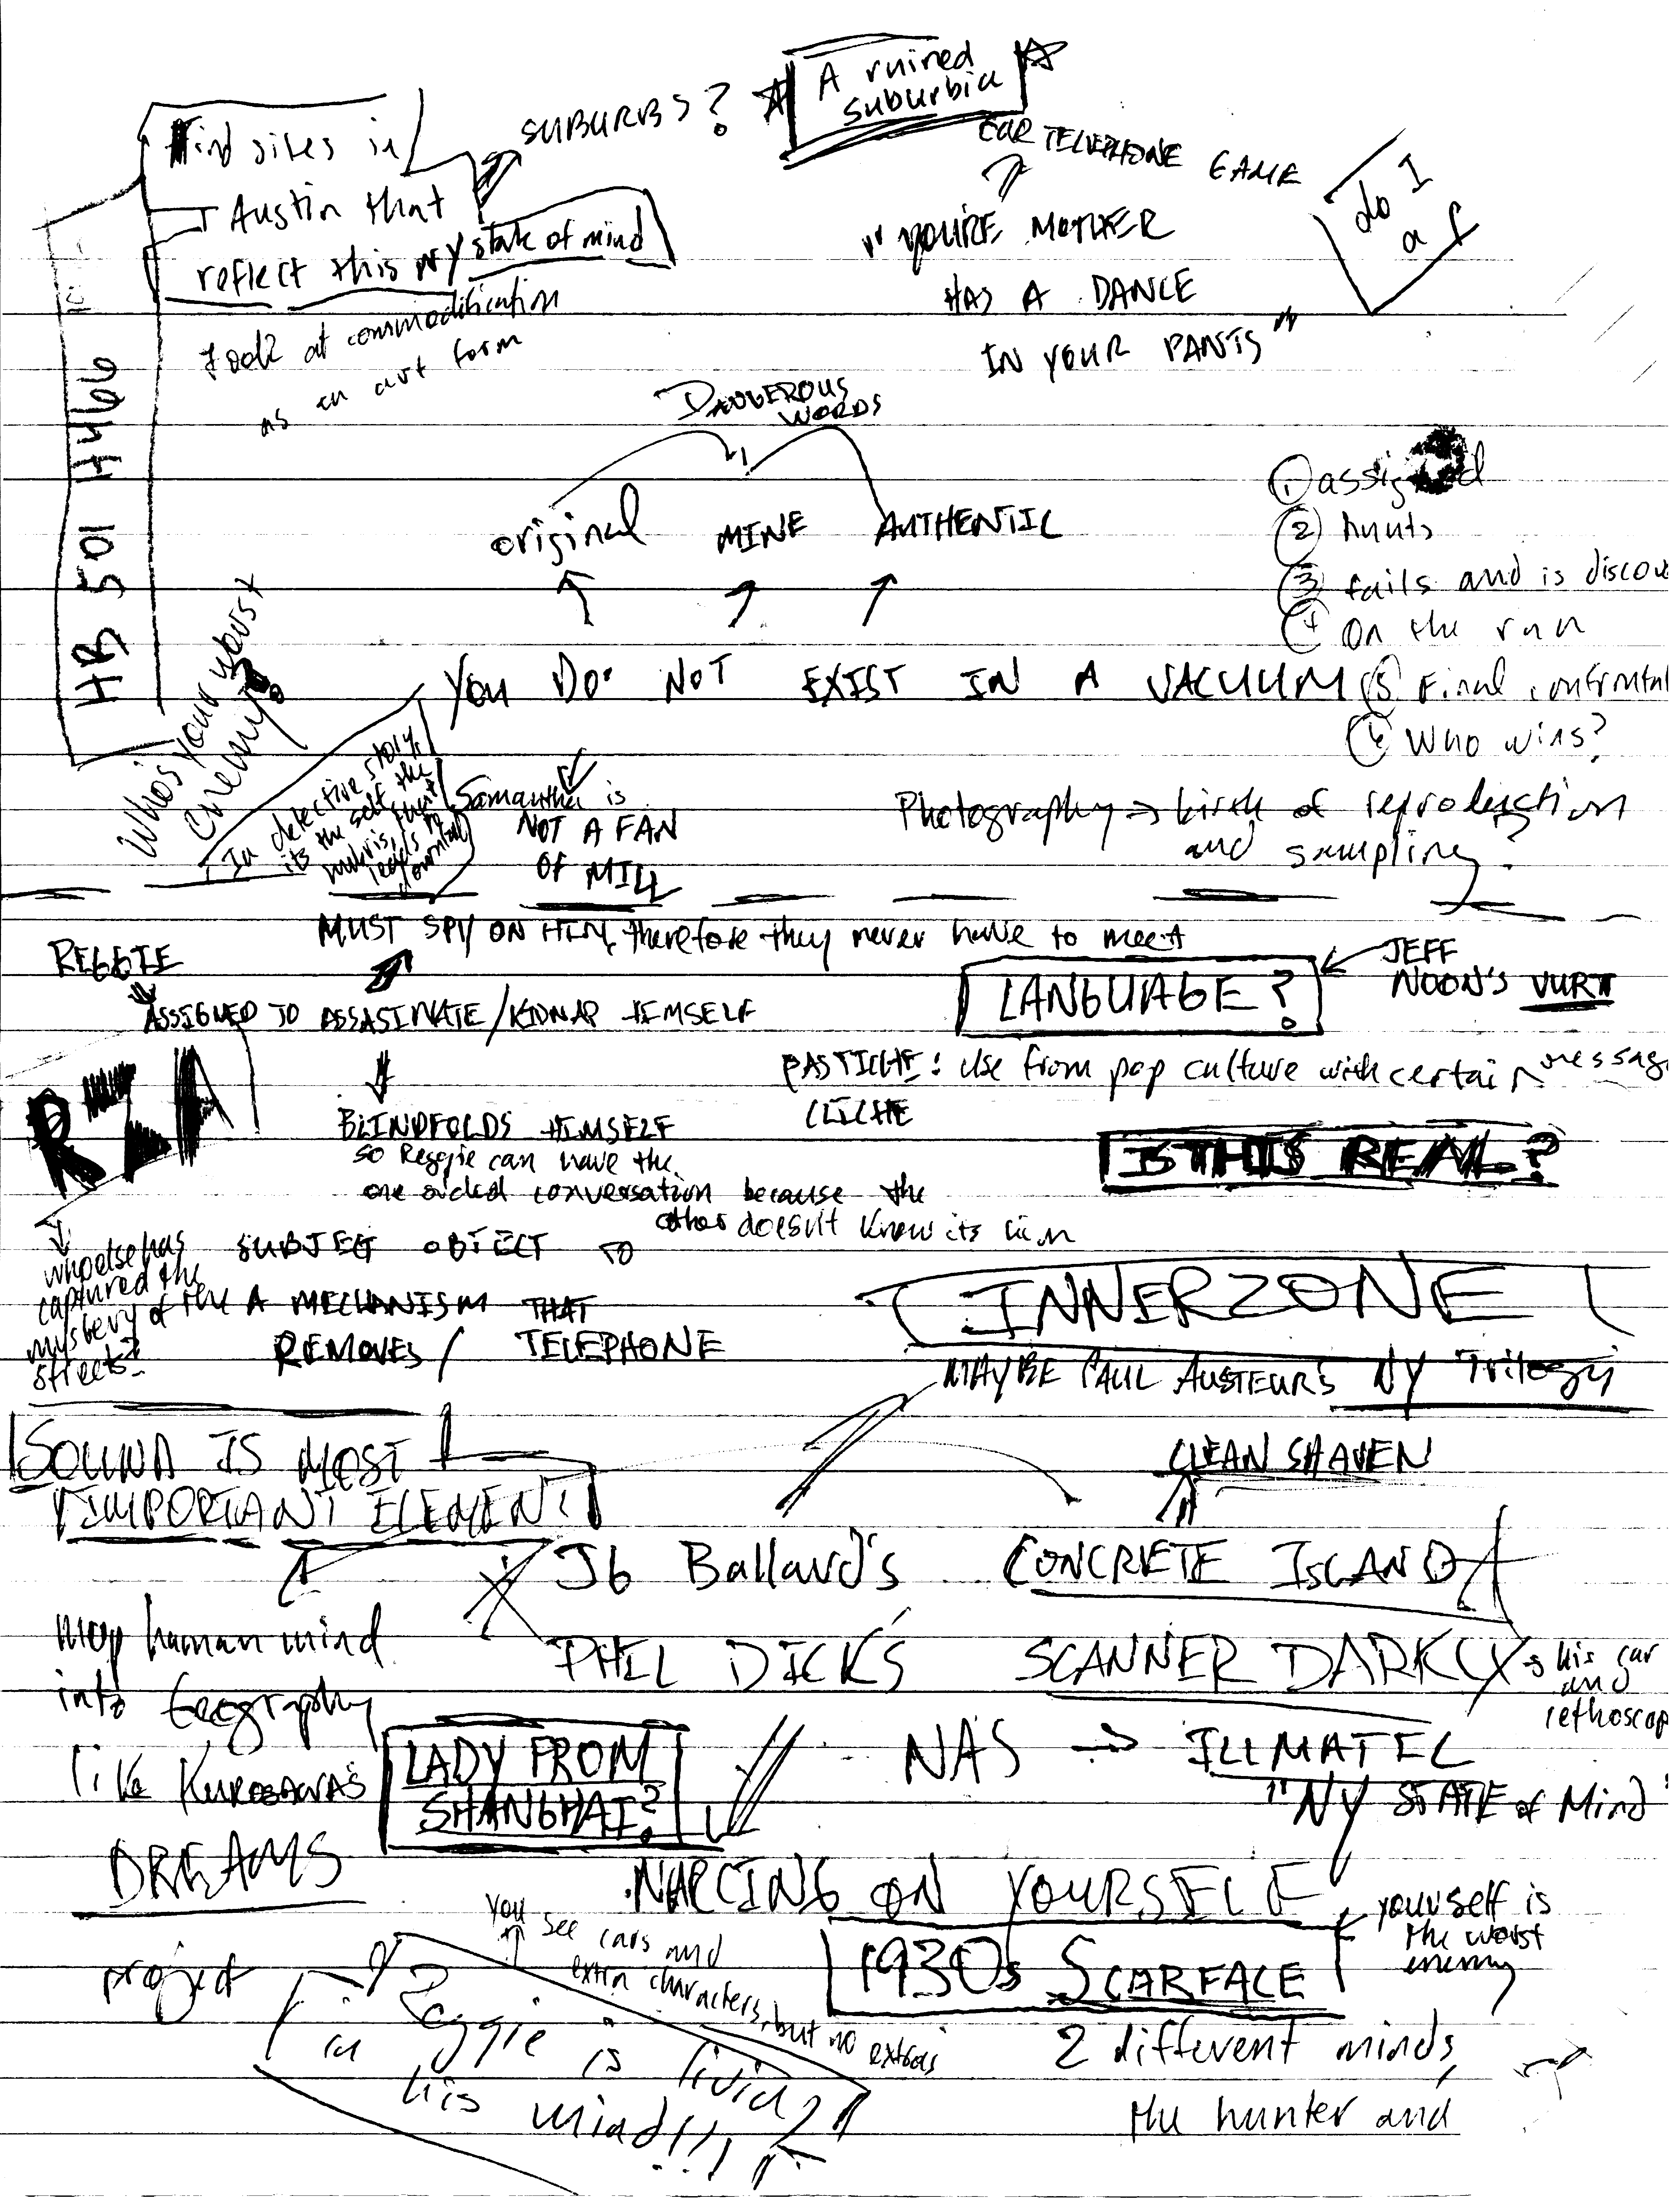 A ruined
suburbia
SUBURBS?
Find sites in
Austin that
reflect this my state of mind
Look at commodification
as an art form
CAR TELEPHONE GAME
"YOU'RE MOTHER
HAS A DANCE
IN YOUR PANTS"
do I
a
HB 501 H466
DANGEROUS
WORDS
original MINE AUTHENTIC
YOU DO NOT EXIST IN A VACUUM
1 assigned
2 hunts
3 fails and is discov
4 On the run
5 Final confrontat
6 Who wins?
Who's your worst
enemy?
In detective story,
its the self the
hubris, that
leads to
downfall
Samantha is
NOT A FAN
OF MILL
Photography → birth of reproduction
and sampling?
MUST SPY ON HIM, therefore they never have to meet
REGGIE
ASSIGNED TO ASSASINATE/KIDNAP HIMSELF
LANGUAGE?
JEFF
NOON'S VURT
RZA
BLINDFOLDS HIMSELF
so Reggie can have the
one sided conversation because the
other doesn't know its him
PASTICHE: Use from pop culture with certain messag
CLICHE
IS THIS REAL?
who else has
captured the
mystery of the
streets?
SUBJECT OBJECT TO
A MECHANISM THAT
REMOVES / TELEPHONE
INNERZONE
MAYBE PAUL AUSTEUR'S NY Trilogy
SOUND IS MOST
IMPORTANT ELEMENT
CLEAN SHAVEN
JG Ballard's CONCRETE ISLAND
PHIL DICK'S SCANNER DARKLY → his car
and
rethoscop
map human mind
into Geography
like KUROSAWA'S
DREAMS
project
LADY FROM
SHANGHAI?
NAS → ILLMATIC
"NY STATE of Mind"
NARCING ON YOURSELF
yourself is
the worst
enemy
1930s SCARFACE
You see cars and
extra characters, but no extras
Reggie is livin
in his mind!!!
2 different minds,
the hunter and